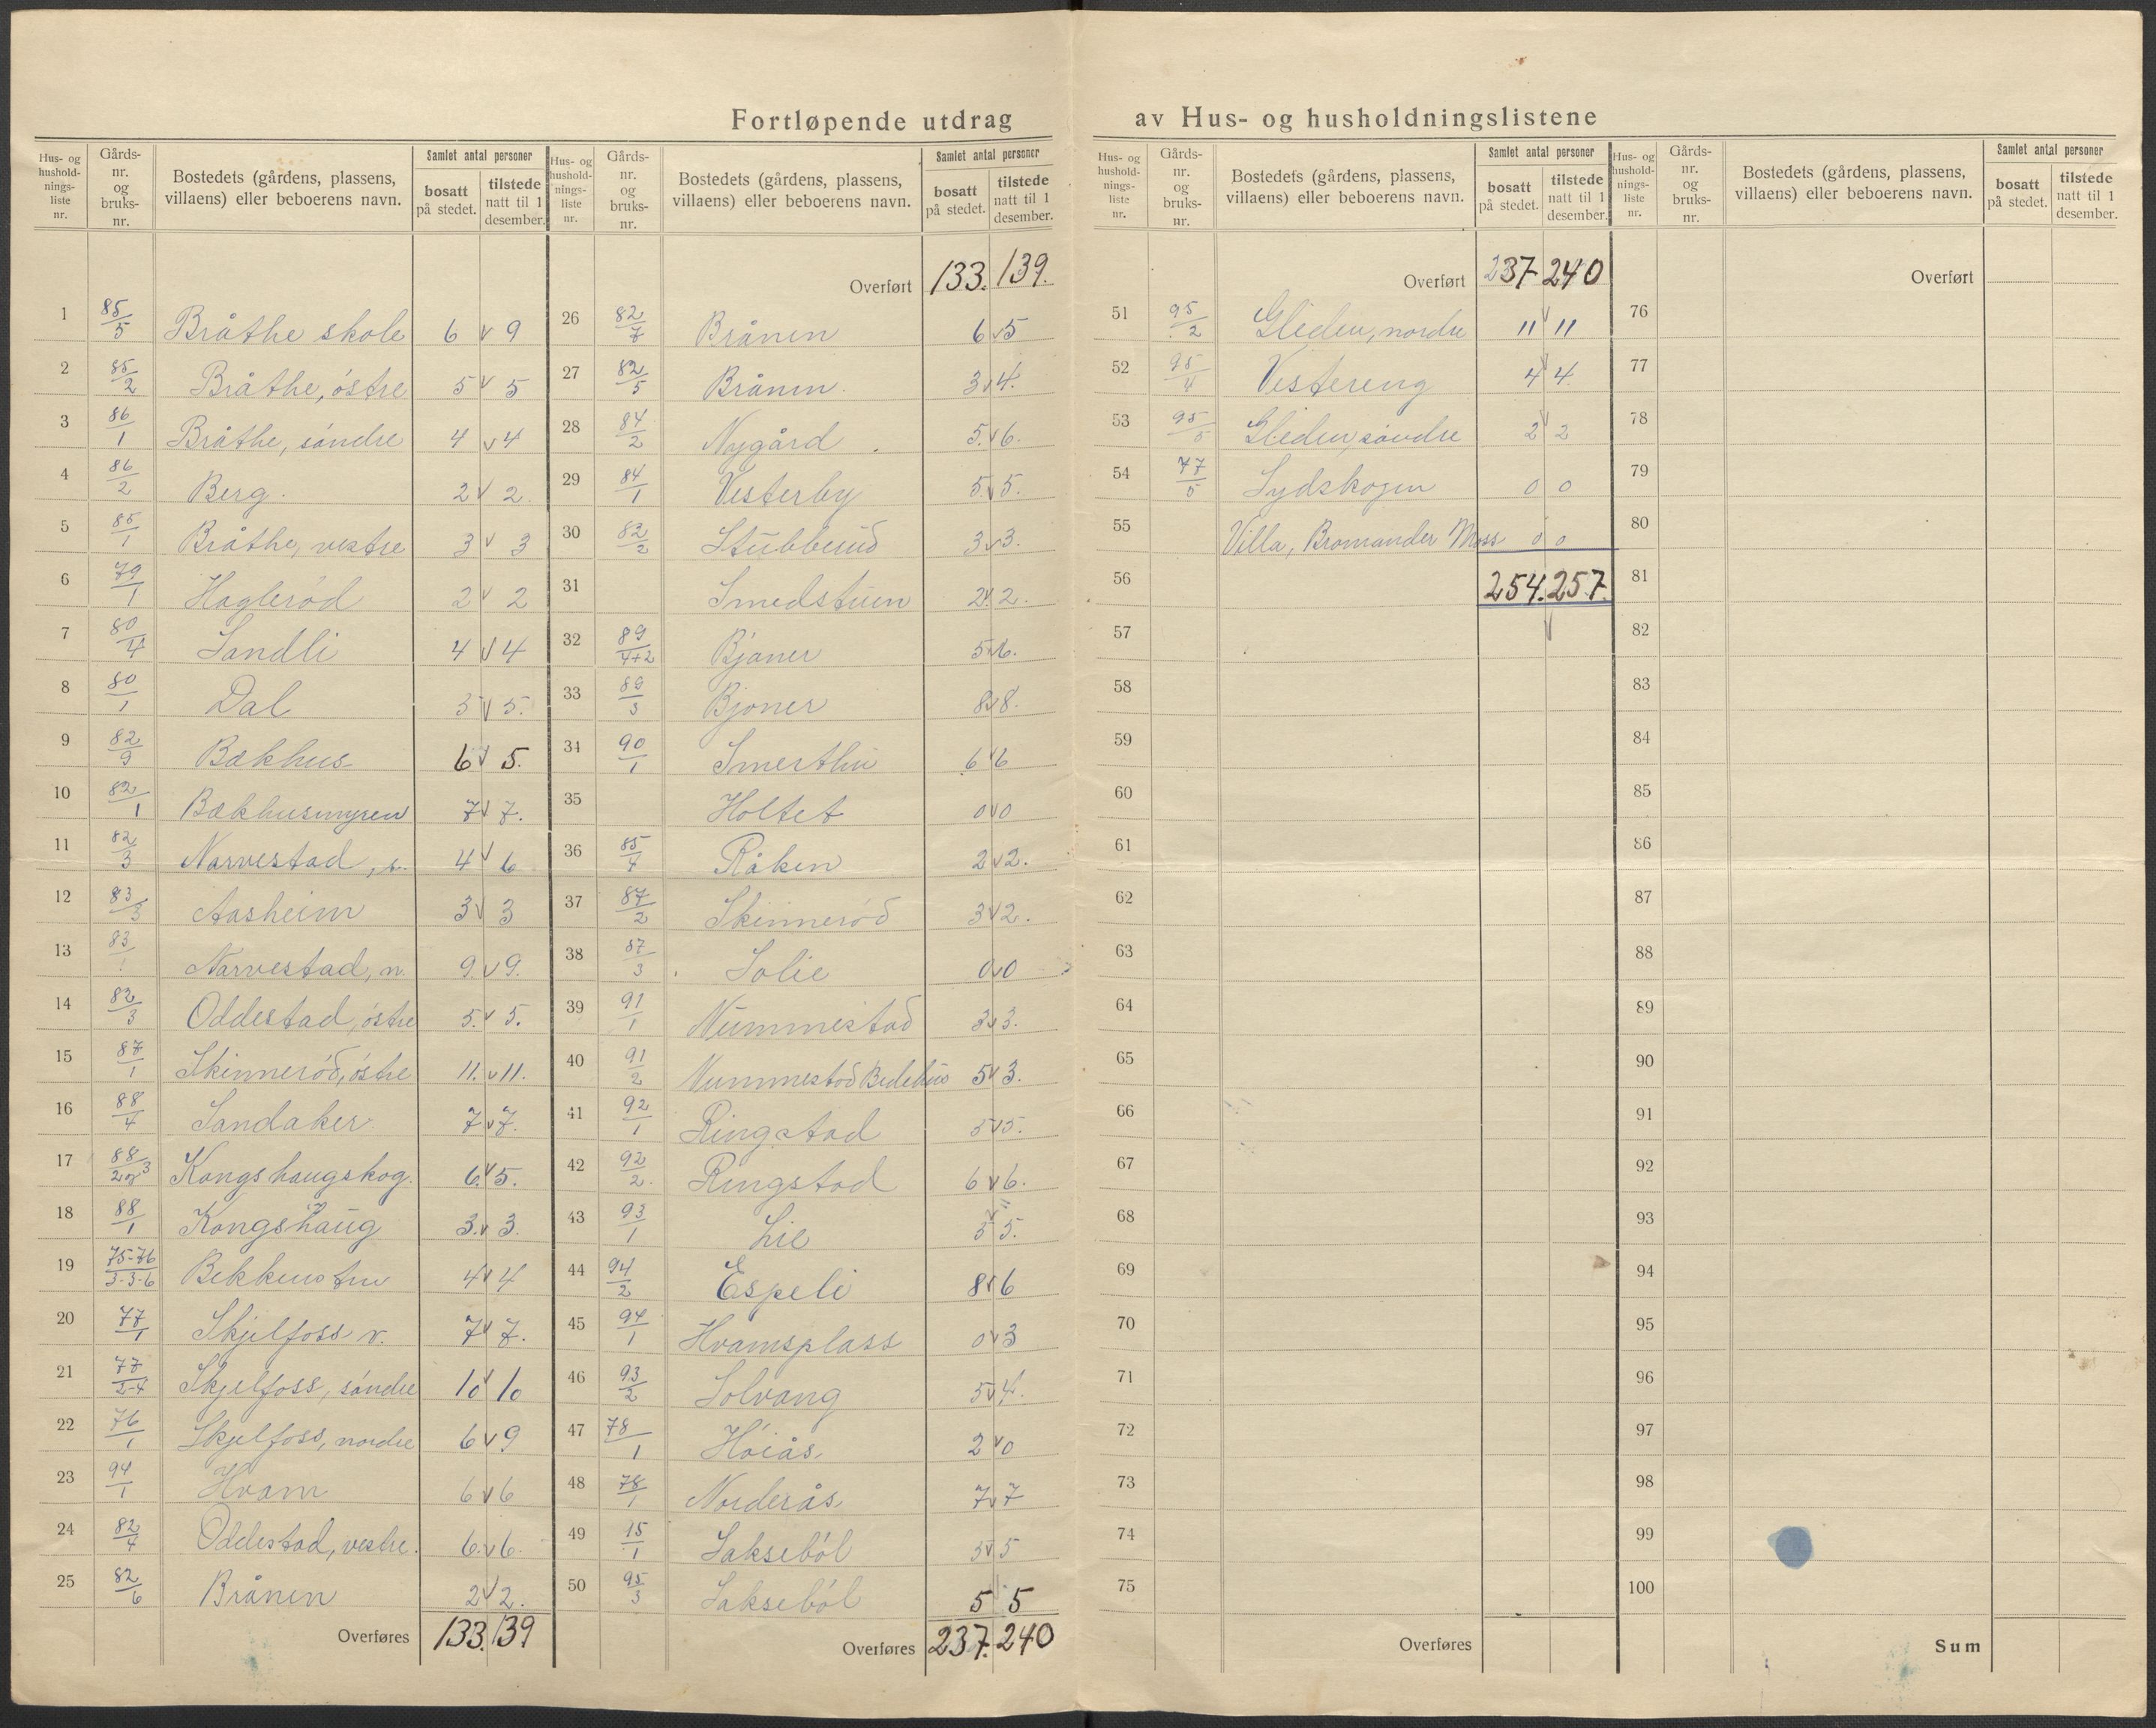 Fortløpende utdrag av Hus- og husholdningslistene
Hus- og hushold-nings-liste nr. Gårds-nr. og bruks-nr. Bostedets (gårdens, plassens, villaens) eller beboerens navn. Samlet antal personer bosatt på stedet. tilstede natt til 1 desember.
1 85/5 Bråthe skole 6 v 9
2 85/2 Bråthe, östre 5 v 5
3 86/1 Bråthe, söndre 4 v 4
4 86/2 Berg. 2 v 2.
5 85/1 Bråthe, vestre 3 v 3
6 79/1 Haglerød 2 v 2
7 80/4 Sandli 4 v 4
8 80/1 Dal 5 v 5.
9 82/9 Bækhus 6 v 5.
10 82/1 Bækhusmyren 7 v 7.
11 82/3 Narvestad, s. 4 v 6
12 83/3 Aasheim 3 v 3
13 83/1 Narvestad, n. 9. v 9.
14 82/3 Oddestad, östre 5. v 5.
15 87/1 Skinneröd, östre 11. v 11.
16 88/4 Sandaker 7 v 7.
17 88/2 og 3 Kongshaugskog. 6. v 5.
18 88/1 Kongshaug 3. v 3.
19 75-76/3-3-6 Bekkensten 4 v 4
20 77/1 Skjelfoss v. 7 v 7.
21 77/2-4 Skjelfoss, söndre 10 v 10
22 76/1 Skjelfoss, nordre 6 v 9
23 94/1 Hvam 6 v 6
24 82/4 Oddestad, vestre. 6. v 6.
25 82/6 Brånen 2 v 2.
Overføres 133. 139
Hus- og hushold-nings-liste nr. Gårds-nr. og bruks-nr. Bostedets (gårdens, plassens, villaens) eller beboerens navn. Samlet antal personer bosatt på stedet. tilstede natt til 1 desember.
Overført 133. 139.
26 82/7 Brånen 6 v 5
27 82/5 Brånen. 3 v 4.
28 84/2 Nygård 5. v 6.
29 84/1 Vesterby 5. v 5.
30 82/2 Stubberud 3 v 3.
31 Smedstuen 2 v 2.
32 89/4+2 Bjöner 5 v 6.
33 89/3 Bjoner 8 v 8.
34 90/1 Smerthu 6 v 6
35 Holtet 0 v 0
36 85/4 Råken 2 v 2.
37 87/2 Skinneröd 3 v 2.
38 87/3 Solie 0 v 0
39 91/1 Nummestad 3 v 3.
40 91/2 Nummestad Bedehus 5 v 3.
41 92/1 Ringstad 5 v 5.
42 92/2. Ringstad 6 v 6.
43 93/1 Lie 5 v 5.
44 94/2 Espeli 8 v 6
45 94/1 Hvamsplass 0 v 3
46 93/2 Solvang 5 v 4.
47 78/1 Höiås 2 v 0
48 78/1 Norderås 7 v 7
49 15/1 Sakseböl 5 v 5
50 95/3 Sakseböl 5 5
Overføres 237. 240
Hus- og hushold-nings-liste nr. Gårds-nr. og bruks-nr. Bostedets (gårdens, plassens, villaens) eller beboerens navn. Samlet antal personer bosatt på stedet. tilstede natt til 1 desember.
Overført 237 240
51 95/2 Gleden, nordre 11 v 11
52 95/4 Vestereng 4 v 4
53 95/5 Gleden, söndre 2 v 2
54 77/5 Sydskogen 0 0
55 Villa, Bromander Moss 0 0
56 254. 257.
57 v
58
59
60
61
62
63
64
65
66
67
68
69
70
71
72
73
74
75
Overføres
Hus- og hushold-nings-liste nr. Gårds-nr. og bruks-nr. Bostedets (gårdens, plassens, villaens) eller beboerens navn. Samlet antal personer bosatt på stedet. tilstede natt til 1 desember.
Overført
76
77
78
79
80
81
82
83
84
85
86
87
88
89
90
91
92
93
94
95
96
97
98
99
100
Sum